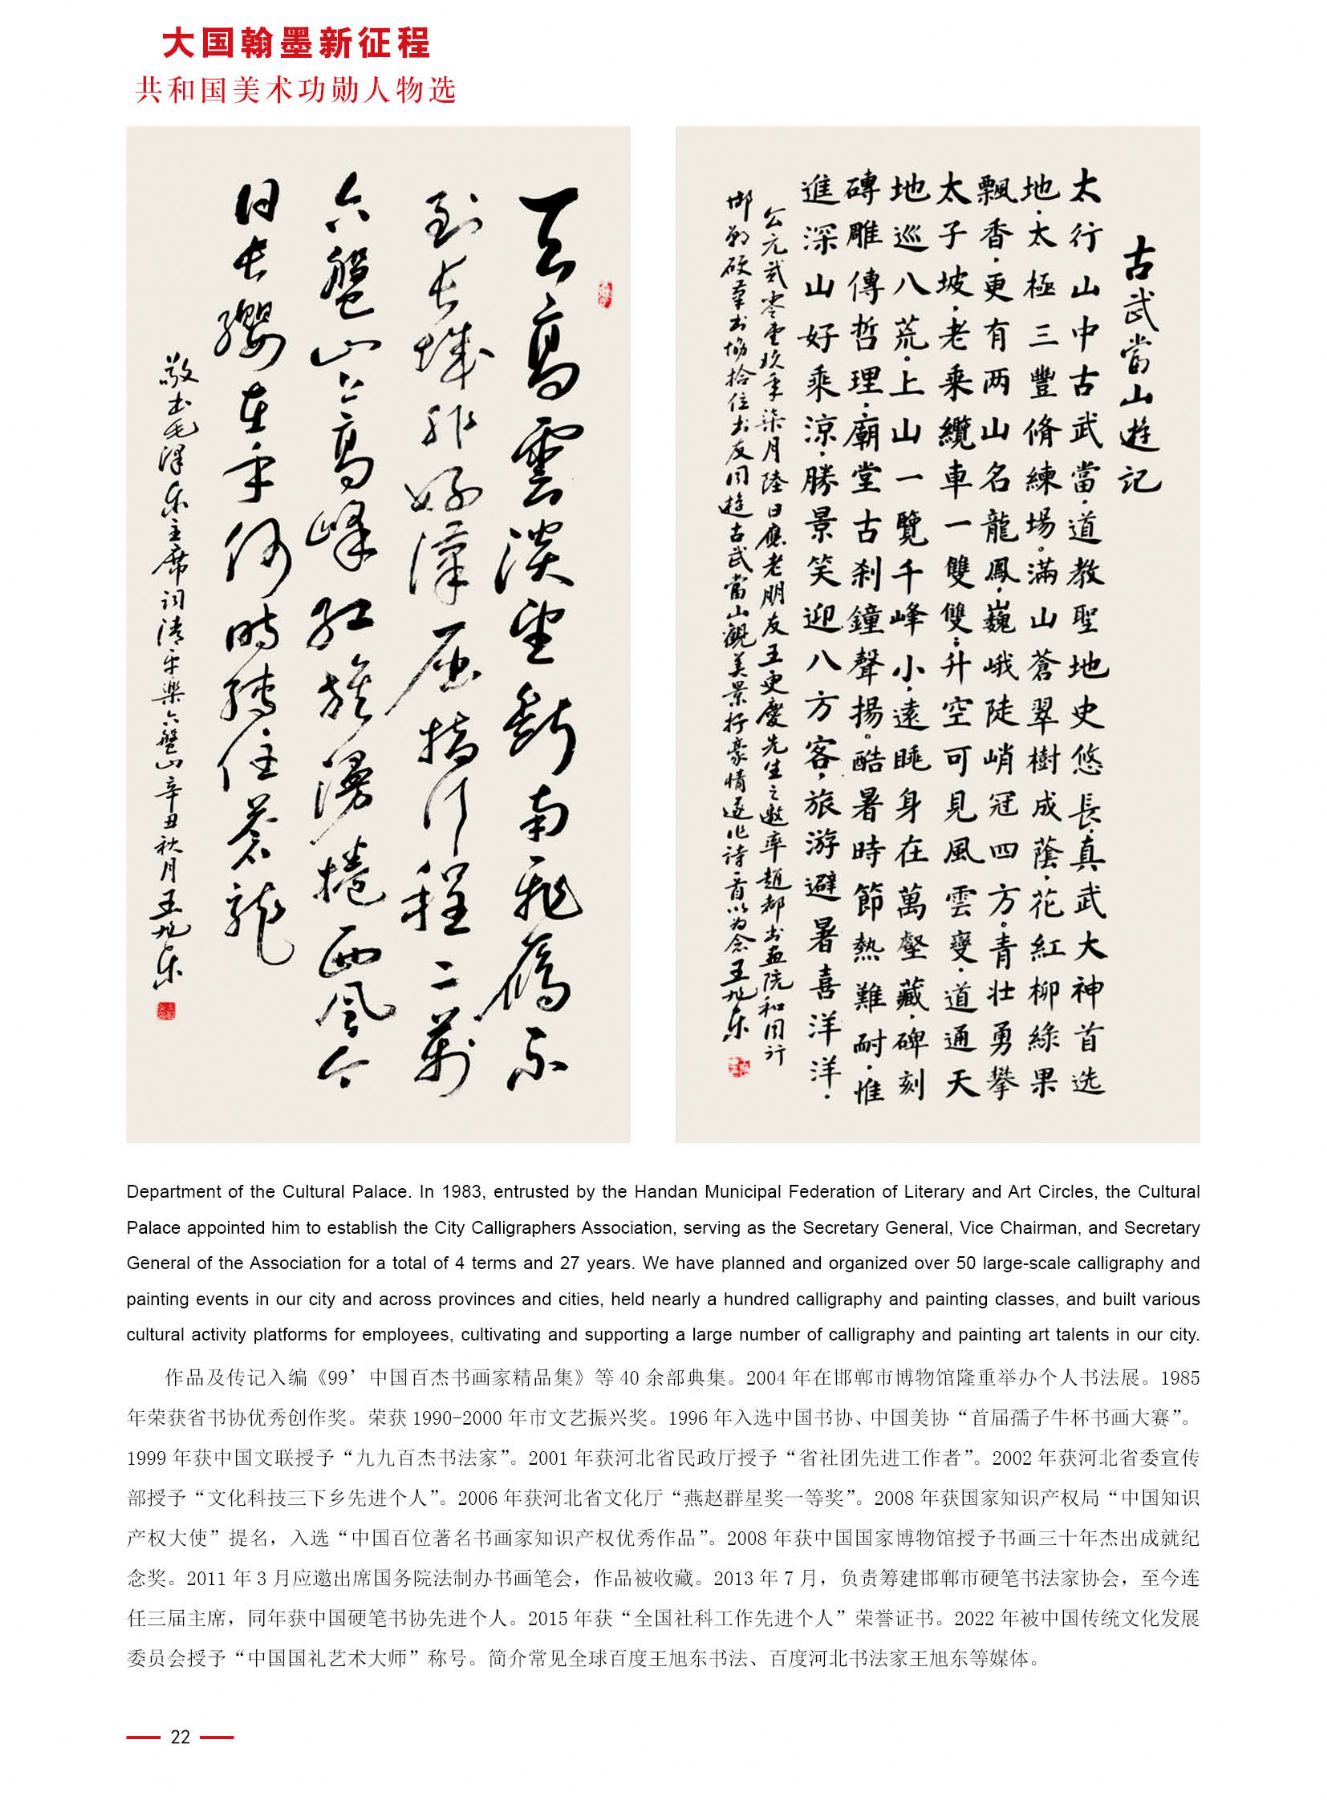 大国翰墨新征程
共和国美术功勋人物选
天高雲淡望斷南飛雁不
到长城非好漢屈指行程二萬
六盤山上高峰紅旗漫捲西風今
日长纓在手何時縛住蒼龍
敬书毛泽东主席词清平樂六盤山辛丑秋月王旭东
古武當山遊記
太行山中古武當，道教聖地史悠長，真武大神首选
地，太極三豐脩練場。滿山蒼翠樹成蔭，花紅柳綠果
飄香，更有两山名龍鳳，巍峨陡峭冠四方。青壮勇攀
太子坡，老乘纜車一雙雙；升空可見風雲变，道通天
地巡八荒。上山一覽千峰小，遠眺身在萬壑藏，碑刻
磚雕傳哲理，廟堂古刹鐘聲揚。酷暑時節熱難耐，惟
進深山好乘凉，勝景笑迎八方客，旅游避暑喜洋洋．
公元贰零壹玖年柒月陸日應老朋友王更慶先生之邀率趙都书画院和同行
邯郸硬筆书協拾位书友同遊古武當山觀美景抒豪情遂作诗一首以为念王旭东
Department of the Cultural Palace. In 1983, entrusted by the Handan Municipal Federation of Literary and Art Circles, the Cultural
Palace appointed him to establish the City Calligraphers Association, serving as the Secretary General, Vice Chairman, and Secretary
General of the Association for a total of 4 terms and 27 years. We have planned and organized over 50 large-scale calligraphy and
painting events in our city and across provinces and cities, held nearly a hundred calligraphy and painting classes, and built various
cultural activity platforms for employees, cultivating and supporting a large number of calligraphy and painting art talents in our city.
作品及传记入编《99’中国百杰书画家精品集》等 40 余部典集。2004 年在邯郸市博物馆隆重举办个人书法展。1985
年荣获省书协优秀创作奖。荣获 1990-2000 年市文艺振兴奖。1996 年入选中国书协、中国美协“首届孺子牛杯书画大赛”。
1999 年获中国文联授予“九九百杰书法家”。2001 年获河北省民政厅授予“省社团先进工作者”。2002 年获河北省委宣传
部授予“文化科技三下乡先进个人”。2006 年获河北省文化厅“燕赵群星奖一等奖”。2008 年获国家知识产权局“中国知识
产权大使”提名，入选“中国百位著名书画家知识产权优秀作品”。2008 年获中国国家博物馆授予书画三十年杰出成就纪
念奖。2011 年 3 月应邀出席国务院法制办书画笔会，作品被收藏。2013 年 7 月，负责筹建邯郸市硬笔书法家协会，至今连
任三届主席，同年获中国硬笔书协先进个人。2015 年获“全国社科工作先进个人”荣誉证书。2022 年被中国传统文化发展
委员会授予“中国国礼艺术大师”称号。简介常见全球百度王旭东书法、百度河北书法家王旭东等媒体。
22